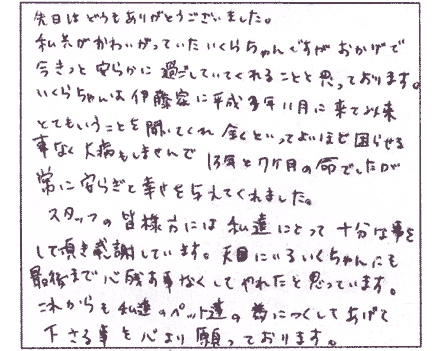 先日はどうもありがとうございました。
私共がかわいがっていたいくらちゃんですが おかげで
今きっと安らかに過ごしていてくれることと思っております。
いくらちゃんは伊藤家に平成 年11月に来て以来
とてもいうことを聞いてくれ 全くといってよいほど困らせる
事なく大病もしませんで 13年と7ヶ月の命でしたが
常に安らぎと幸せを与えてくれました。
スタッフの皆様方には私達にとって十分な事を
して頂き感謝しています。天国にいるいくちゃんにも
最後まで心残す事なくしてやれたと思っています。
これからも私達のペット達の為につくしてあげて
下さる事を心より願っております。